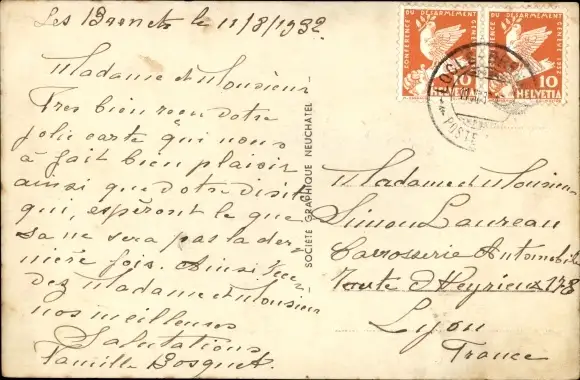 Les Brenets le 11/8/1932.
Madame et Monsieur
Très bien reçu votre
jolie carte qui nous
à fait bien plaisir
ainsi que votre visite
qui, espèront le que
sa ne sera pas la der-
nière fois. Ainsi rece-
dez Madame et Monsieur
nos meilleures
Salutations
Famille Bosquet.
SOCIÉTÉ GRAPHIQUE NEUCHATEL
CONFERENCE DU DESARMEMENT
10
HELVETIA
CONFERENCE DU DESARMEMENT
10
HELVETIA
Madame et Monsieur
Simon Laureau
Carrosserie Automobile
Route d'Heyrieux 178
Lyon
France